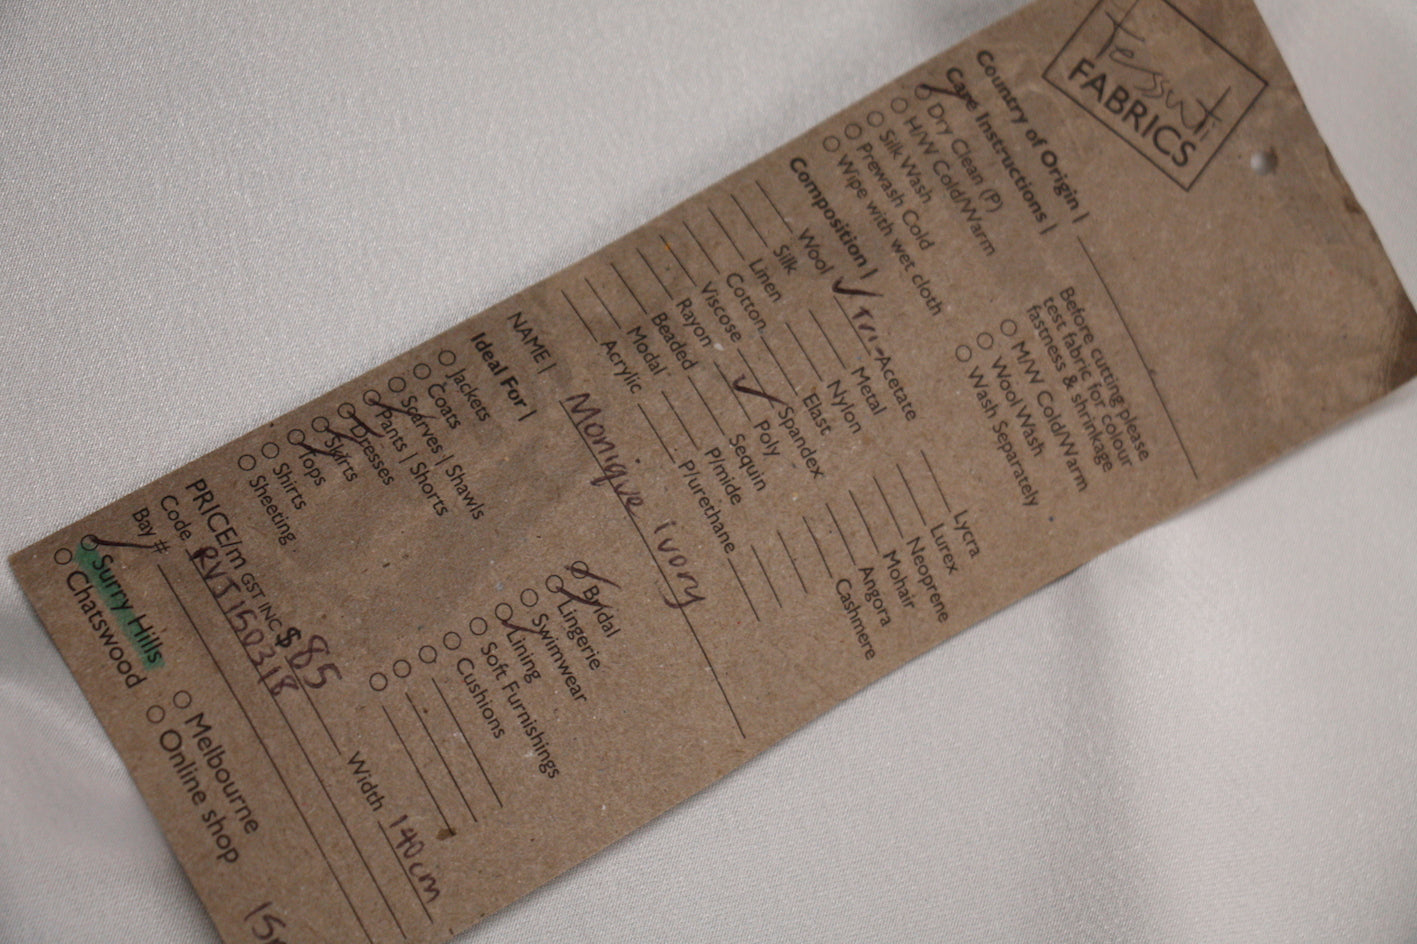 Tessuti
FABRICS
Country of Origin |
Care Instructions |
Dry Clean (P)
H/W Cold/Warm
Silk Wash
Prewash Cold
Wipe with wet cloth
Before cutting please
test fabric for colour
fastness & shrinkage
M/W Cold/Warm
Wool Wash
Wash Separately
Composition |
Wool
Silk
Linen
Cotton
Viscose
Rayon
Beaded
Modal
Acrylic
Tri-Acetate
Metal
Nylon
Elast
Spandex
Poly
Sequin
P/mide
P/urethane
Lycra
Lurex
Neoprene
Mohair
Angora
Cashmere
NAME | Monique Ivory
Ideal For |
Jackets
Coats
Scarves | Shawls
Pants | Shorts
Dresses
Skirts
Tops
Shirts
Sheeting
Bridal
Lingerie
Swimwear
Lining
Soft Furnishings
Cushions
PRICE/m GST INC $85 Width 140cm
Code RVJ150318
Bay #
Surry Hills
Chatswood
Melbourne
Online shop